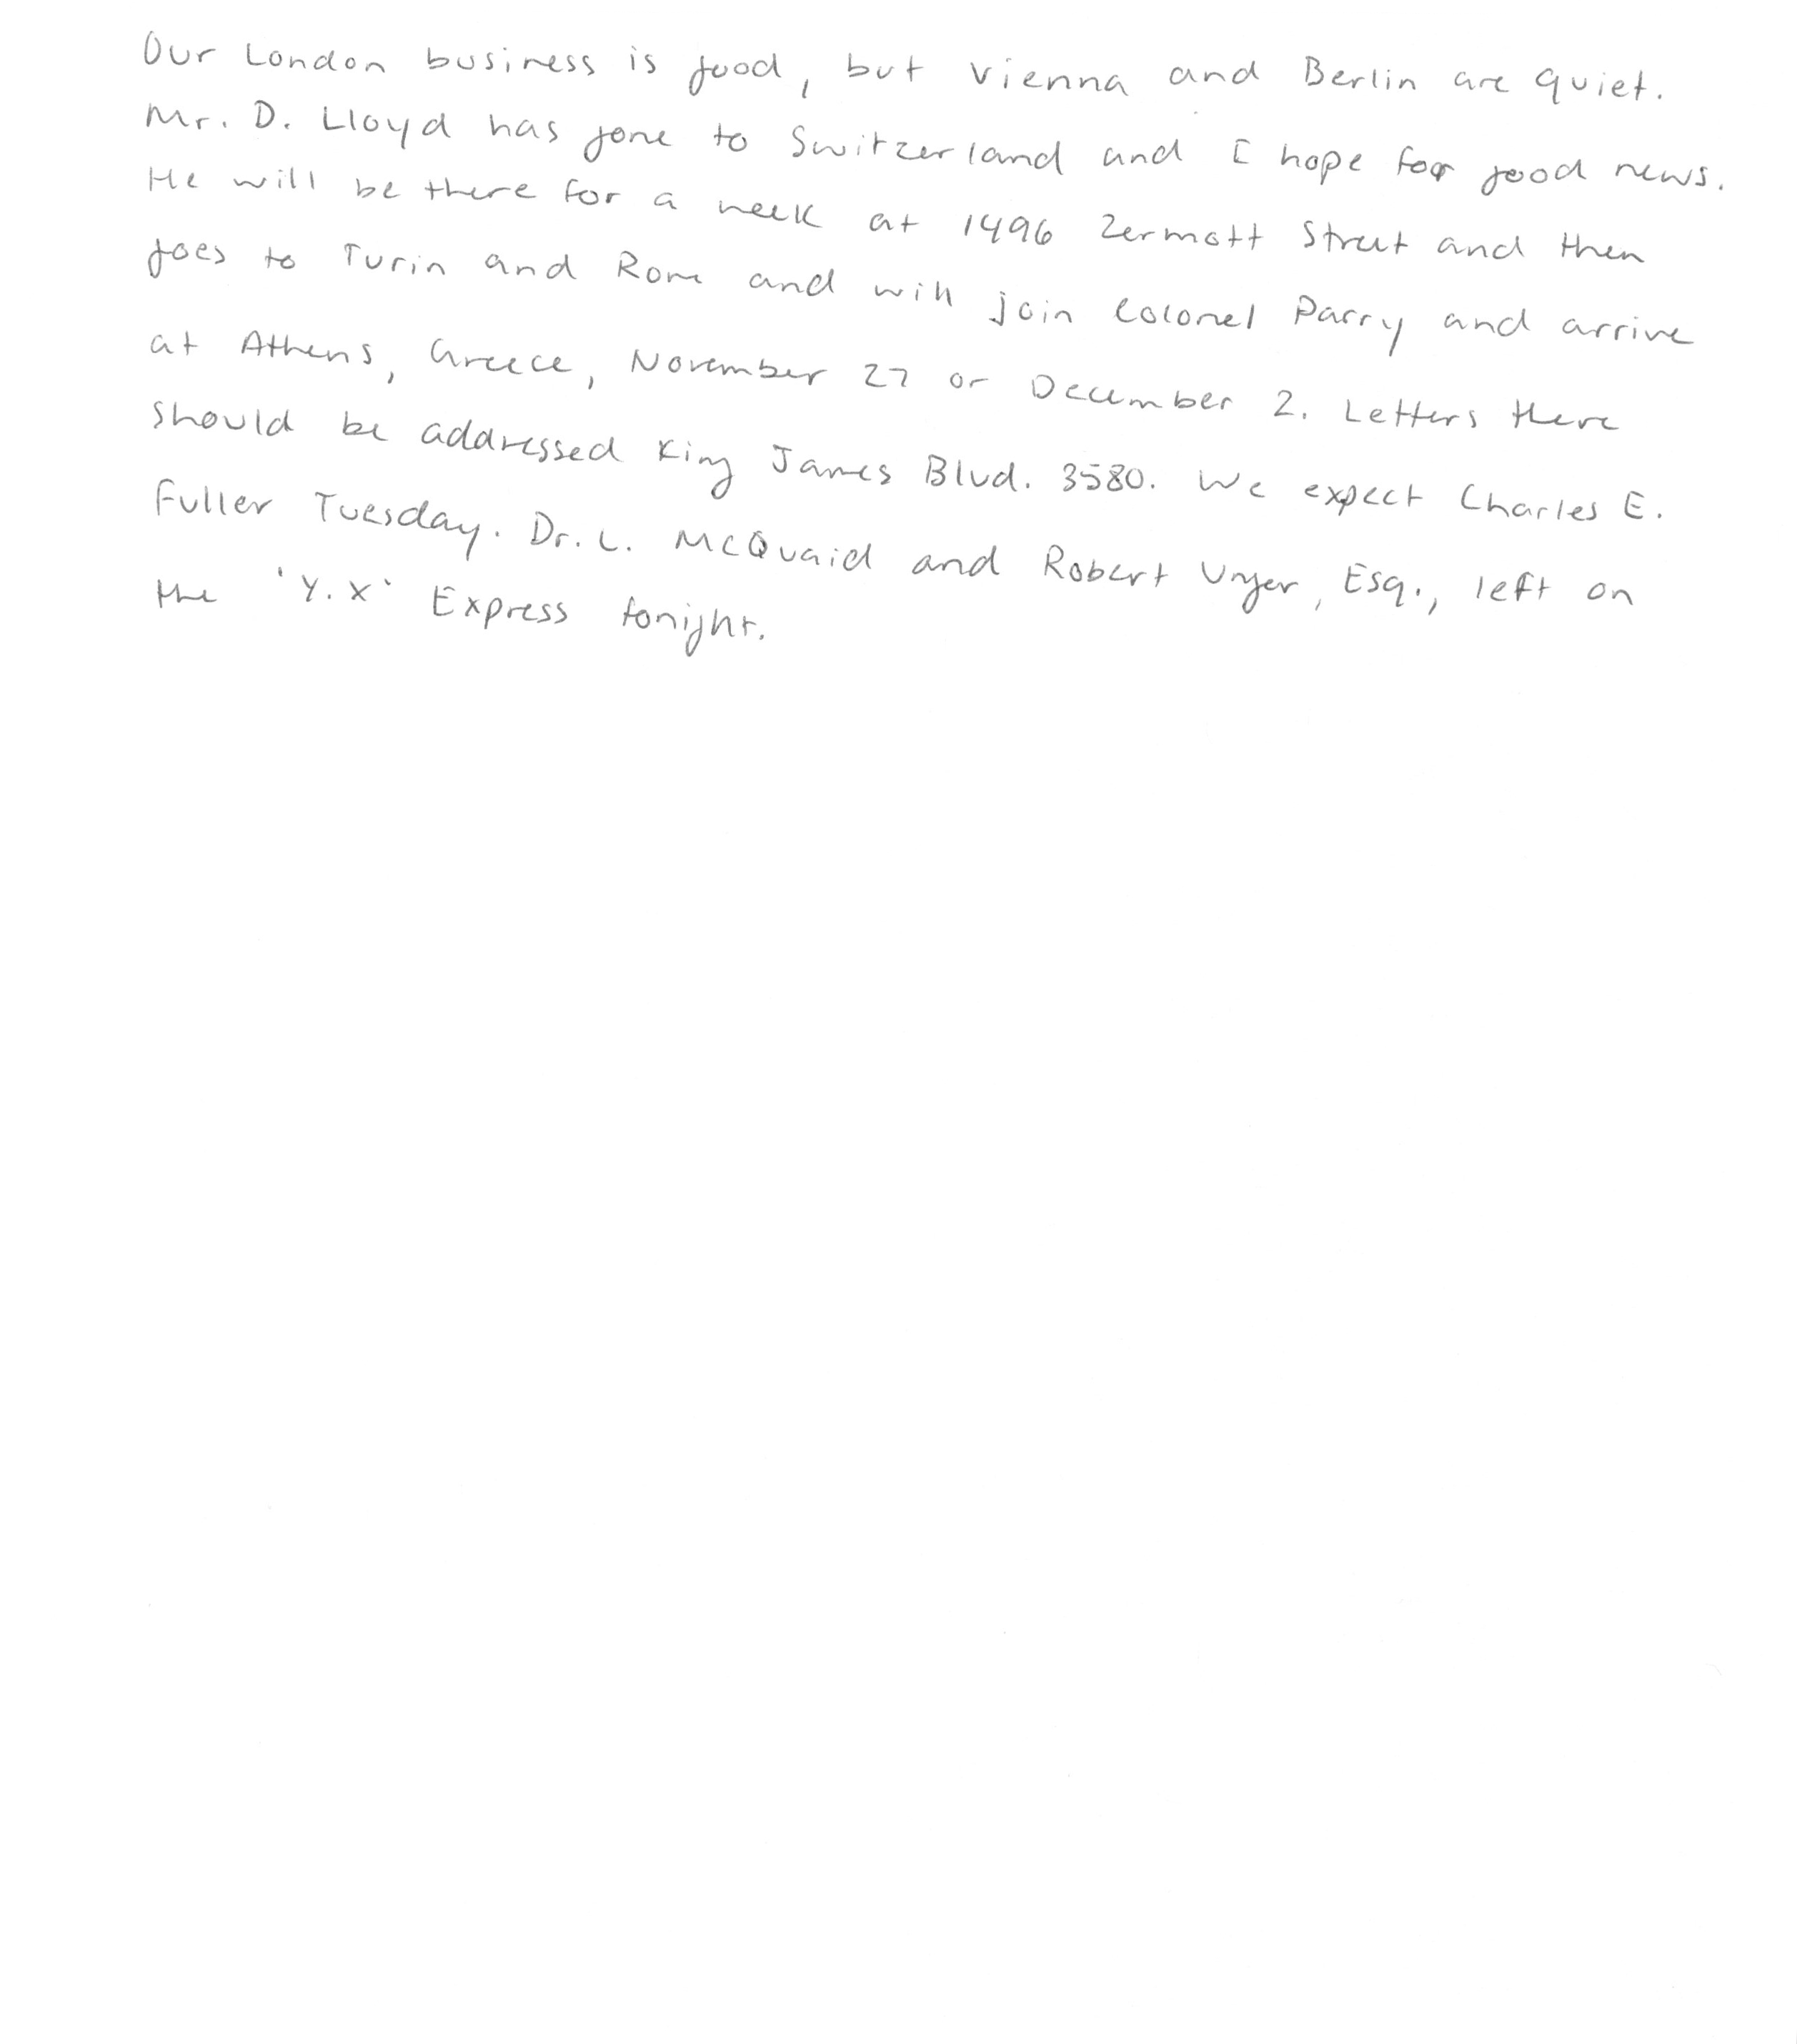 Our London business is good, but Vienna and Berlin are quiet.
Mr. D. Lloyd has gone to Switzerland and I hope for good news.
He will be there for a week at 1496 Zermott Street and then
goes to Turin and Rome and will join Colonel Parry and arrive
at Athens, Greece, November 27 or December 2. Letters there
should be addressed King James Blvd. 3580. We expect Charles E.
Fuller Tuesday. Dr. L. McQuaid and Robert Unger, Esq., left on
the 'Y.X' Express tonight.